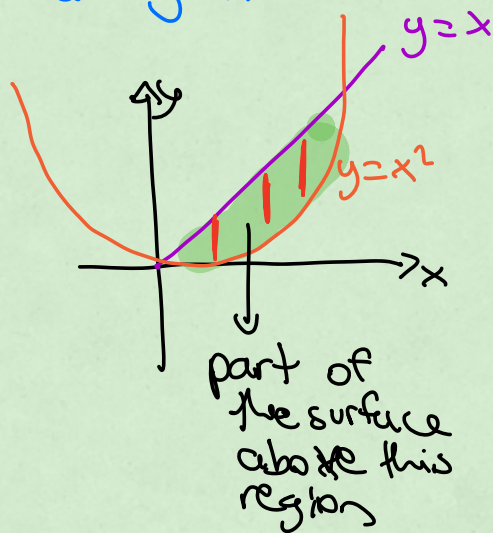 y=x
y
y=x²
x
part of
the surface
above this
region